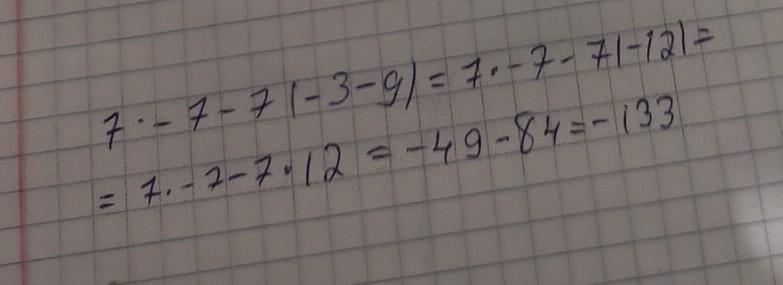 7·-7-7|-3-9|=7·-7-7|-12|=
=7·-7-7·12=-49-84=-133